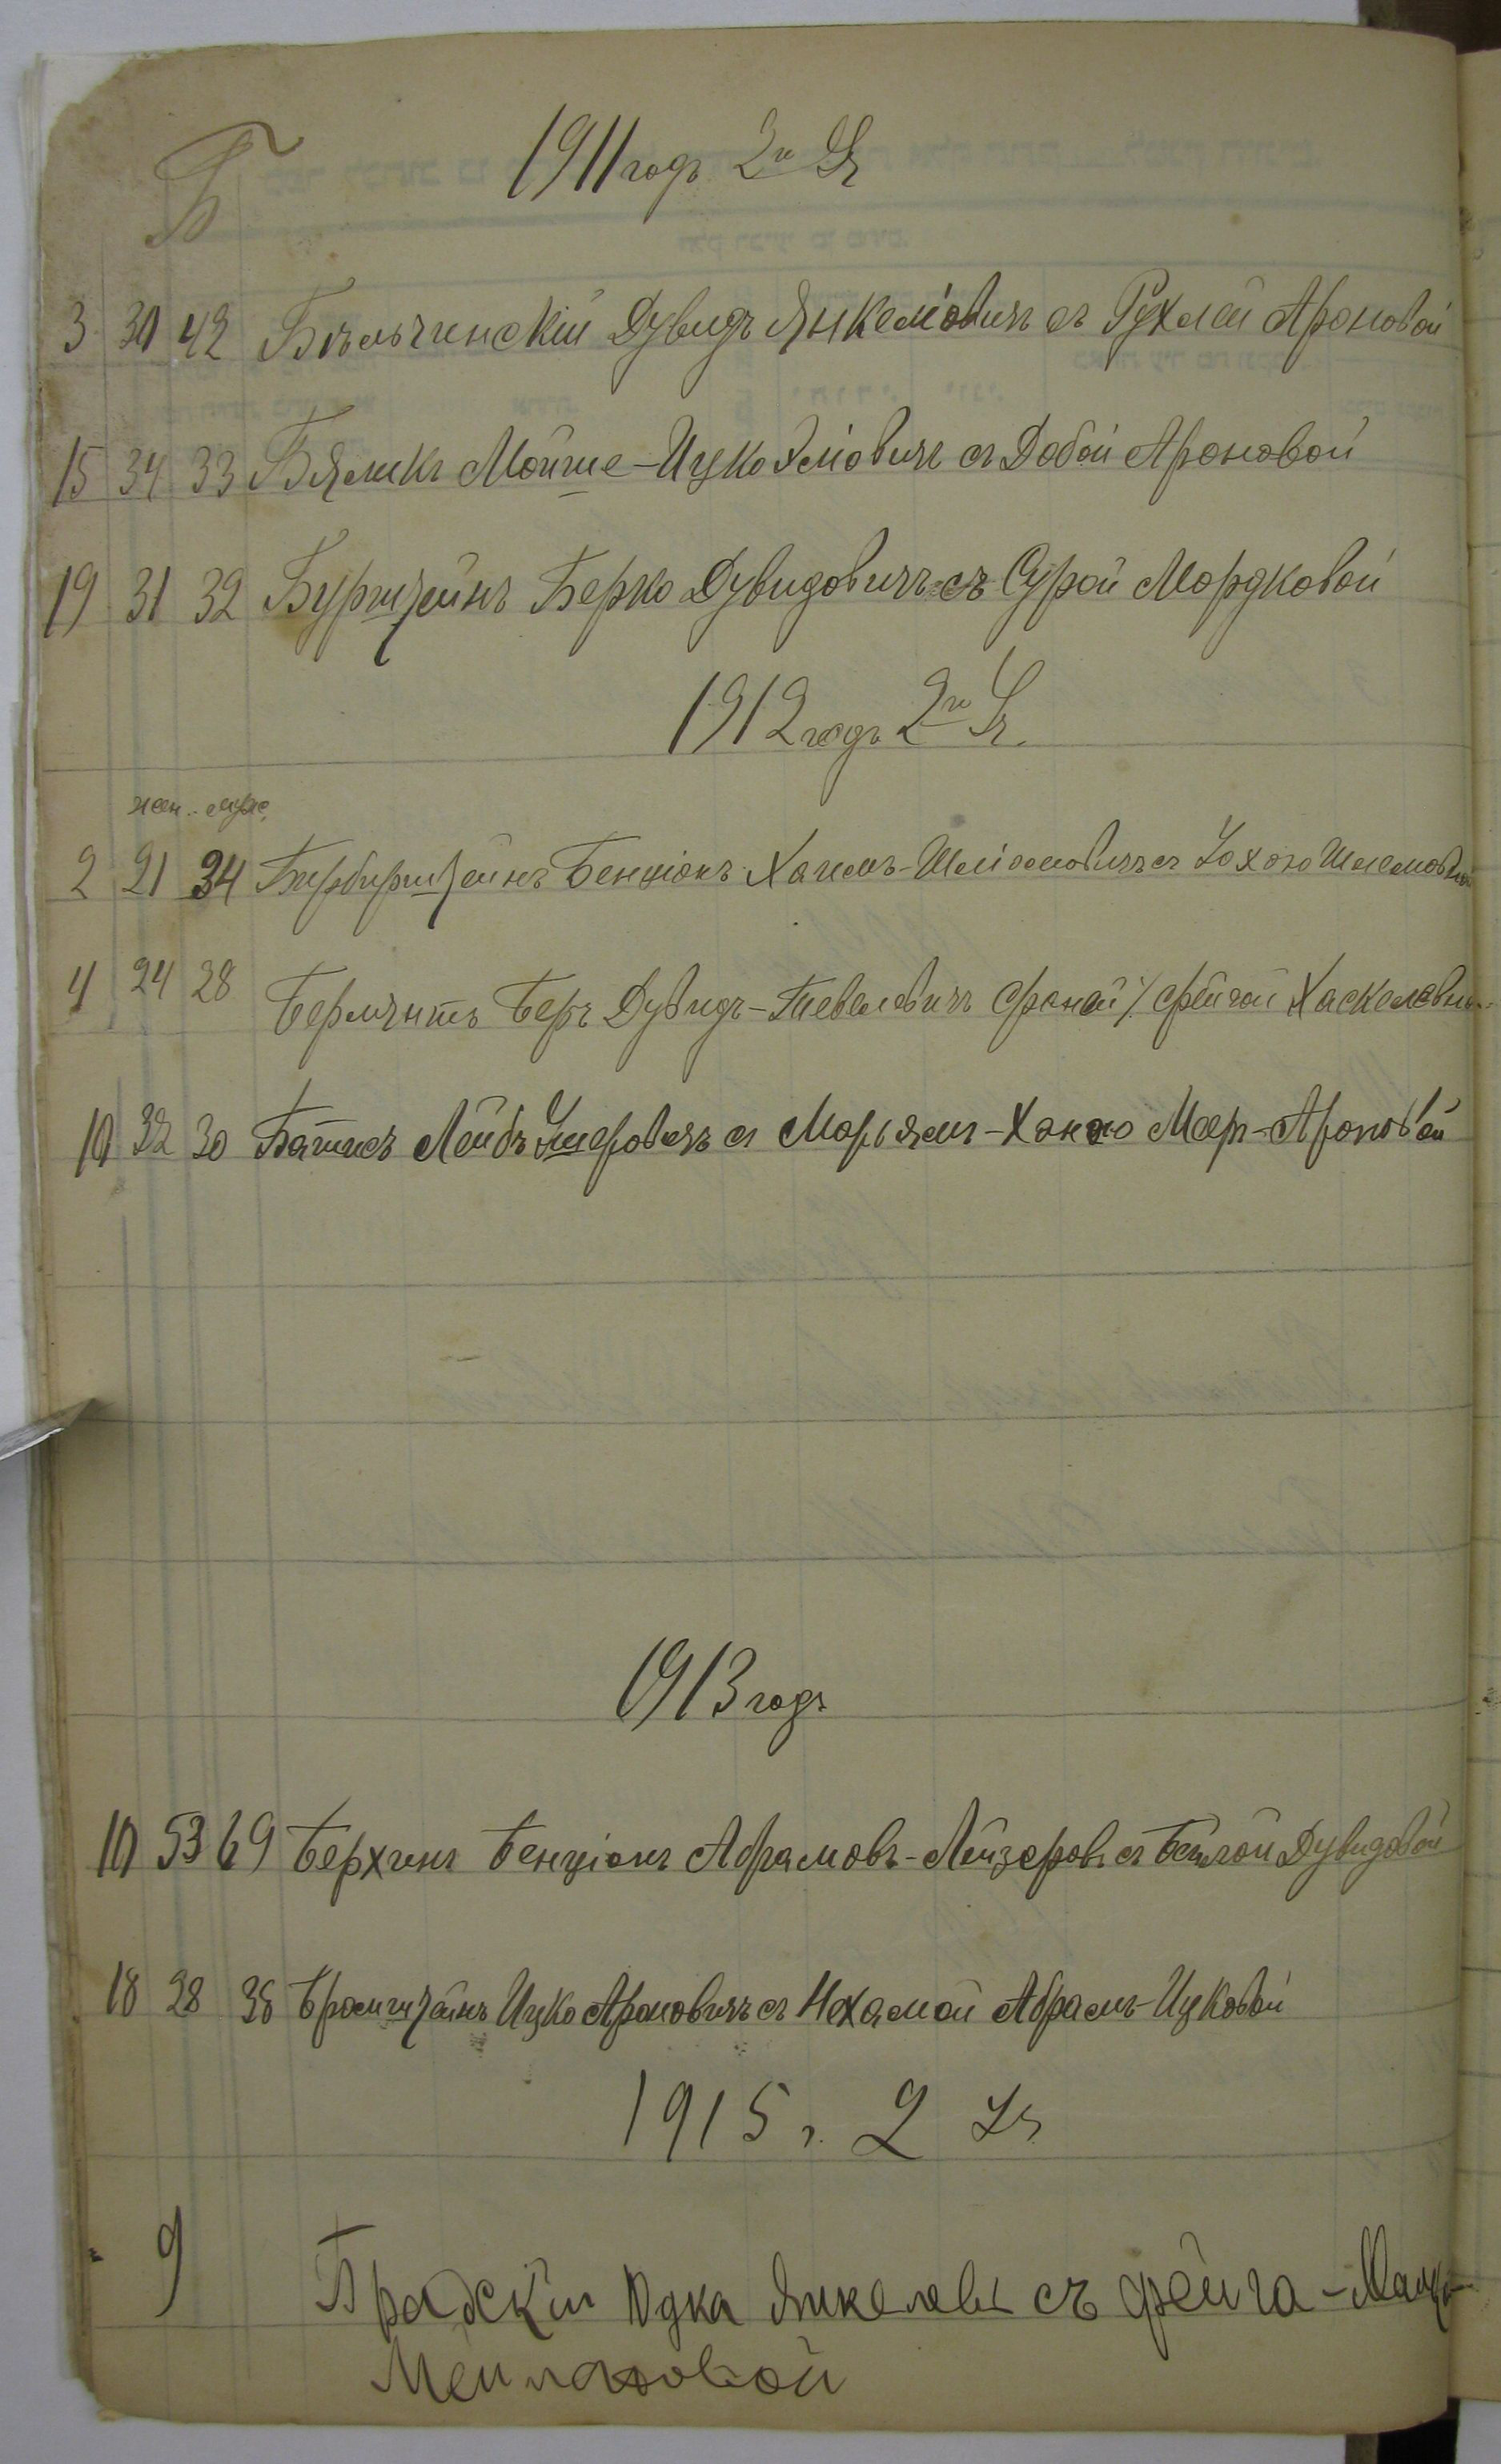 Б
1911 годъ 2я Ч
3 30 42 Бѣльчинскій Дувидъ Янкеліовичъ съ Рухлей Ароновой
15 34 33 Бяликъ Мойше-Ицко съ Добой Ароновой
19 31 32 Бурштейнъ Берко Дувидовичъ съ Сурой Мордковой
1912 годъ 2я Ч.
жен. муж.
2 21 34 Бенціонъ Хаимъ-Шліомовичъ съ Хохою Шлемовной
4 24 28 Беръ Дувидъ-Тевелевичъ Фрейдой Хаскелевны
10 32 30 Лейбъ Ушеровичъ съ Марьямъ-Ханою Меер-Ароновой
1913 годъ
10 53 69 Берхинъ Бенціонъ Абрамовъ-Лейзеровъ съ Бейлой Дувидовой
18 28 36 Бромштейнъ Ицко Ароновичъ съ Нехамой Абрамъ-Ицковой
1915 г. 2 Ч
9 Бродскій Юдка Янкелевъ съ Фейга-
Мейлаховой